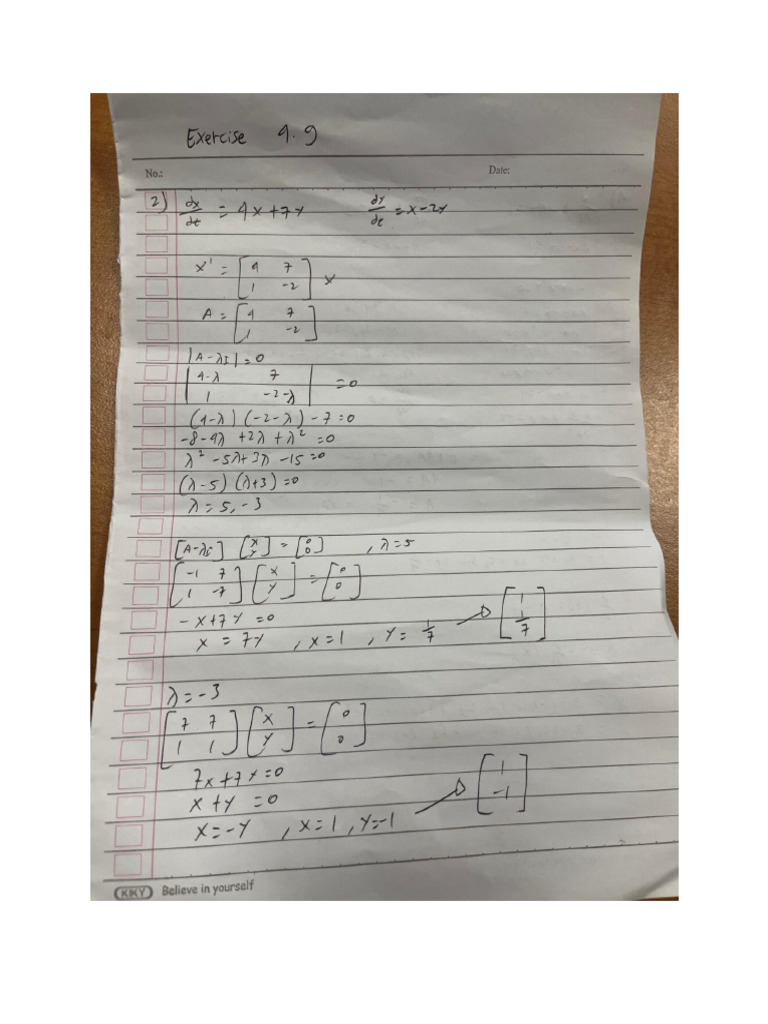 Exercise 4.9
No.: Date:
2) dx/dt = 4x+7y dy/dt = x-2y
x' = [4 7; 1 -2] x
A = [4 7; 1 -2]
|A-λI| = 0
|4-λ 7; 1 -2-λ| = 0
(4-λ)(-2-λ) - 7 = 0
-8-4λ+2λ+λ² = 0
λ² -5λ+3λ -15 = 0
(λ-5)(λ+3) = 0
λ = 5, -3
[A-λI] [x; y] = [0; 0] , λ=5
[-1 7; 1 -7] [x; y] = [0; 0]
-x+7y = 0
x = 7y , x=1 , y = 1/7 → [1; 1/7]
λ = -3
[7 7; 1 1] [x; y] = [0; 0]
7x+7y = 0
x+y = 0
x = -y , x=1 , y=-1 → [1; -1]
KKY Believe in yourself